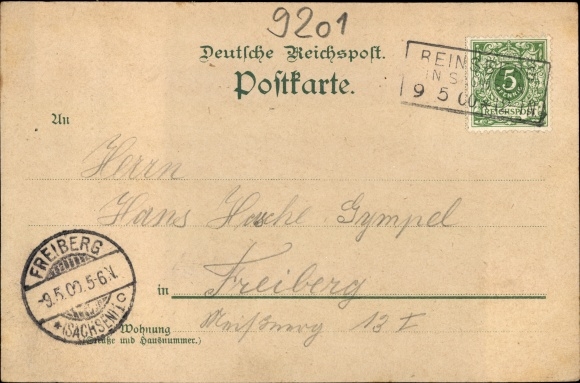 9201
Deutsche Reichspost.
Postkarte.
IN S
9 5 00
5
PFENNIG
REICHSPOST
An
Herrn
Hans Gympel
in Freiberg
Wohnung
(Straße und Hausnummer.)
13 I
FREIBERG
-9.5.00.5-6N.
*(SACHSEN)1c